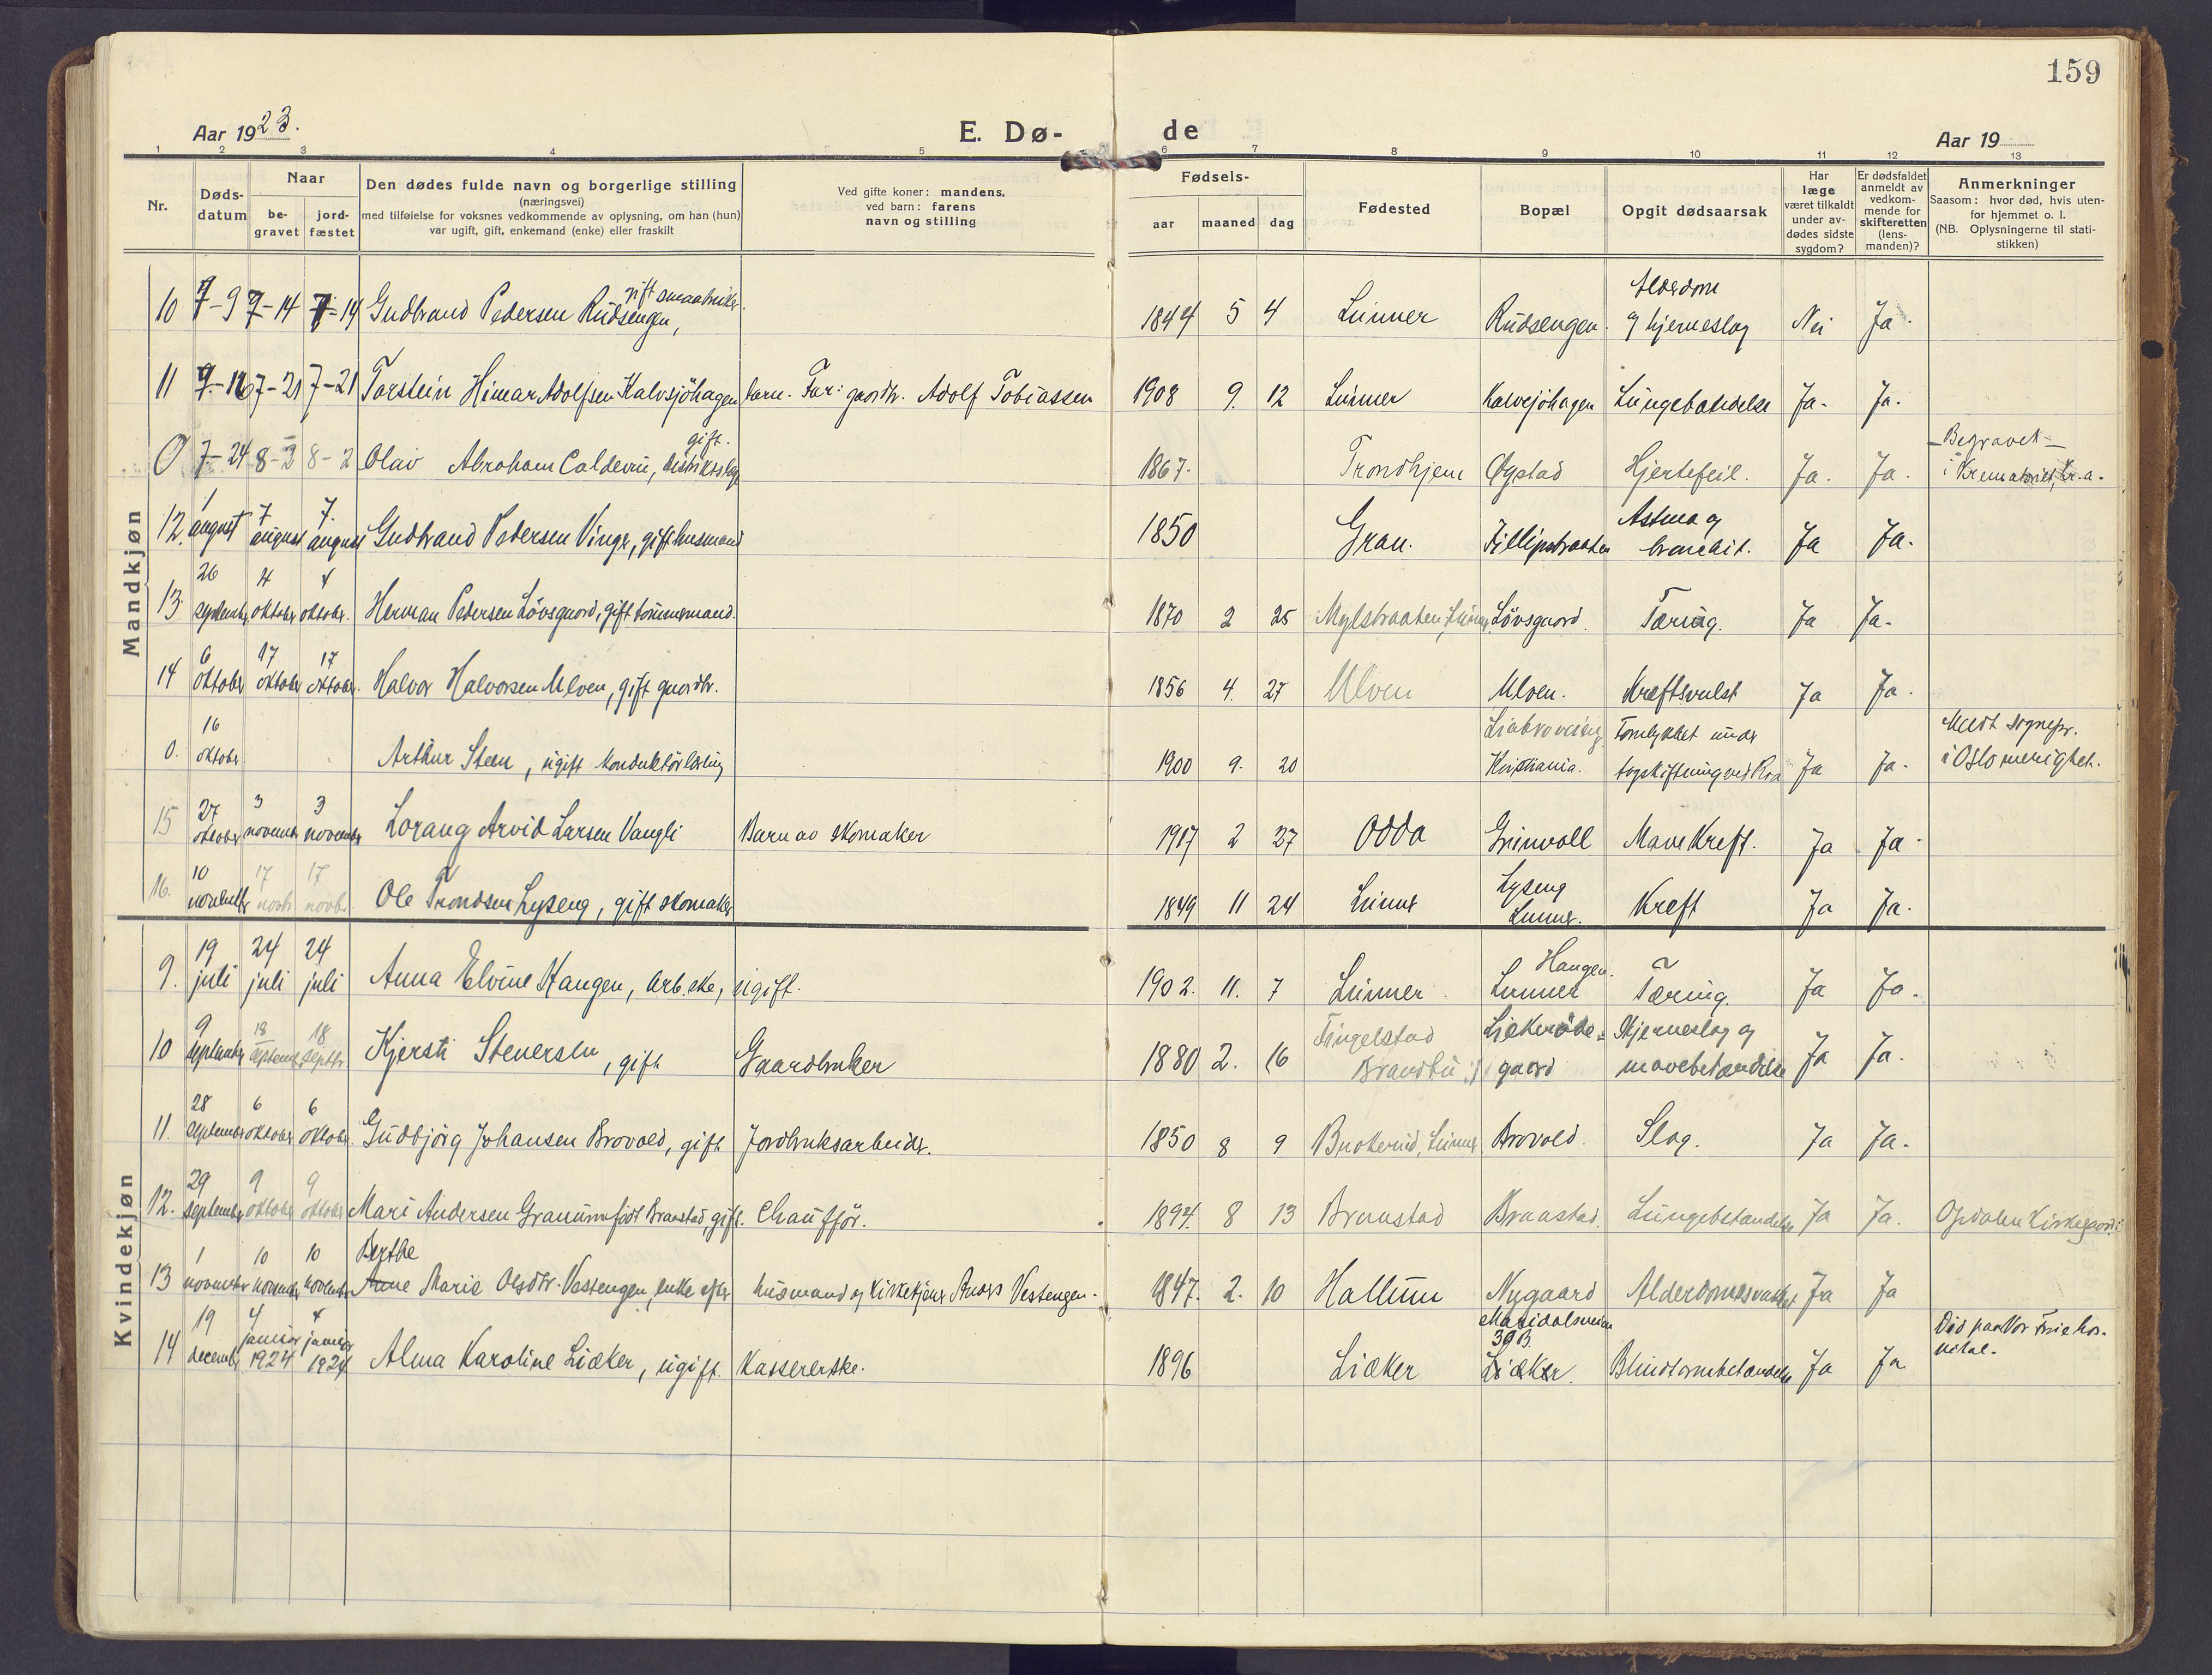 159
Aar 1923.
E. Dø-
de
Aar 19
1 2 3 4 5 6 7 8 9 10 11 12 13
Nr.
Døds-
datum
Naar
be-
gravet
jord-
fæstet
Den dødes fulde navn og borgerlige stilling
(næringsvei)
med tilføielse for voksnes vedkommende av oplysning, om han (hun)
var ugift, gift, enkemand (enke) eller fraskilt
Ved gifte koner: mandens,
ved barn: farens
navn og stilling
Fødsels-
aar maaned dag
Fødested
Bopæl
Opgit dødsaarsak
Har
læge
været tilkaldt
under av-
dødes sidste
sygdom?
Er dødsfaldet
anmeldt av
vedkom-
mende for
skifteretten
(lens-
manden)?
Anmerkninger
Saasom: hvor død, hvis uten-
for hjemmet o. l.
(NB. Oplysningerne til stati-
stikken)
Mandkjøn
gift smaabruker. Alderdom
10 7-9 7-14 7-14 Gudbrand Pedersen Rudsengen, 1844 5 4 Lunner Rudsengen. og hjerneslag Nei Ja.
11 7-16 7-21 7-21 Torstein Himar Adolfsen Kalvsjöhagen barn. Far: gaardbr. Adolf Tobiassen 1908 9. 12 Lunner Kalvsjöhagen Lungebetændelse Ja. Ja.
gift. Begravet
0 7-24 8-2 8-2 Olav Abraham Calderin, distriktslæge 1867. Trondhjem Øystad Hjertefeil. Ja. Ja. i Krematoriet, Kr.a.
1 7 7. Astma og
12. august august august Gudbrand Pedersen Vinge, gift husmand 1850 Gran. Fillipsbraaten bronchit. Ja Ja.
26 4 4
13. september oktober oktober. Herman Pedersen Lövsgaard, gift tömmermand. 1870 2 25 Mylsbraaten, Lunner Lövsgaard. Tæring. Ja Ja.
6 17 17
14 oktober oktober oktober. Halvor Halvorsen Ulven, gift gaardbr. 1856 4. 27 Ulven Ulven. Kræftsvulst Ja Ja.
16 Liabroveien, Forulykket under Meldt sognepr.
0. oktober Arthur Steen, ugift konduktörlærling 1900 9. 20 Kristiania. togskiftning ved Roa Ja Ja. i Oslo menighet.
27 3 3
15 oktober november november Lorang Arvid Larsen Vangli Barn av skomaker 1917 2 27 Odda Grinvoll Mavekreft. Ja Ja.
10 17 17 Lyseng
16. november novbr. novbr. Ole Trondsen Lyseng, gift skomaker 1849 11 24 Lunner Lunner. Kreft Ja Ja.
Kvindekjøn
19 24 24 Haugen.
9. juli juli juli Anna Elvine Haugen, arb.ske, ugift. 1902. 11. 7 Lunner Lunner Tæring. Ja Ja.
9 18 18 Tingelstad Hjerneslag og
10 september september septbr. Kjersti Stenersen, gift Gaardbruker 1880 2. 16 Brandbu gaard mavebetændelse Ja Ja.
28 6 6
11. september oktober oktober. Gudbjörg Johansen Brovold, gift Jordbruksarbeider. 1850 8 9 Lunner Brovold. Slag. Ja Ja.
29 9 9
12. september oktober oktober Mari Andersen Granum född Braastad, gift. Chaufför. 1894. 8 13 Braastad Braastad. Lungebetændelse Ja Ja. Opdalen Kirkegaard
1 10 10 Berthe
13 november november november Anne Marie Olsdtr. Vestengen, enke efter husmand og kirketjener Anders Vestengen. 1847. 2. 10 Hallum Nygaard Alderdomssvakhet Ja Ja
19 4 4 Maridalsveien Död paa Vor Frue hos-
januar januar 39 B. pital.
14 decembr. 1924 1924 Alma Karoline Liæker, ugift. Kassererske. 1896 Liæker Liæker. Blindtarmbetændelse Ja Ja